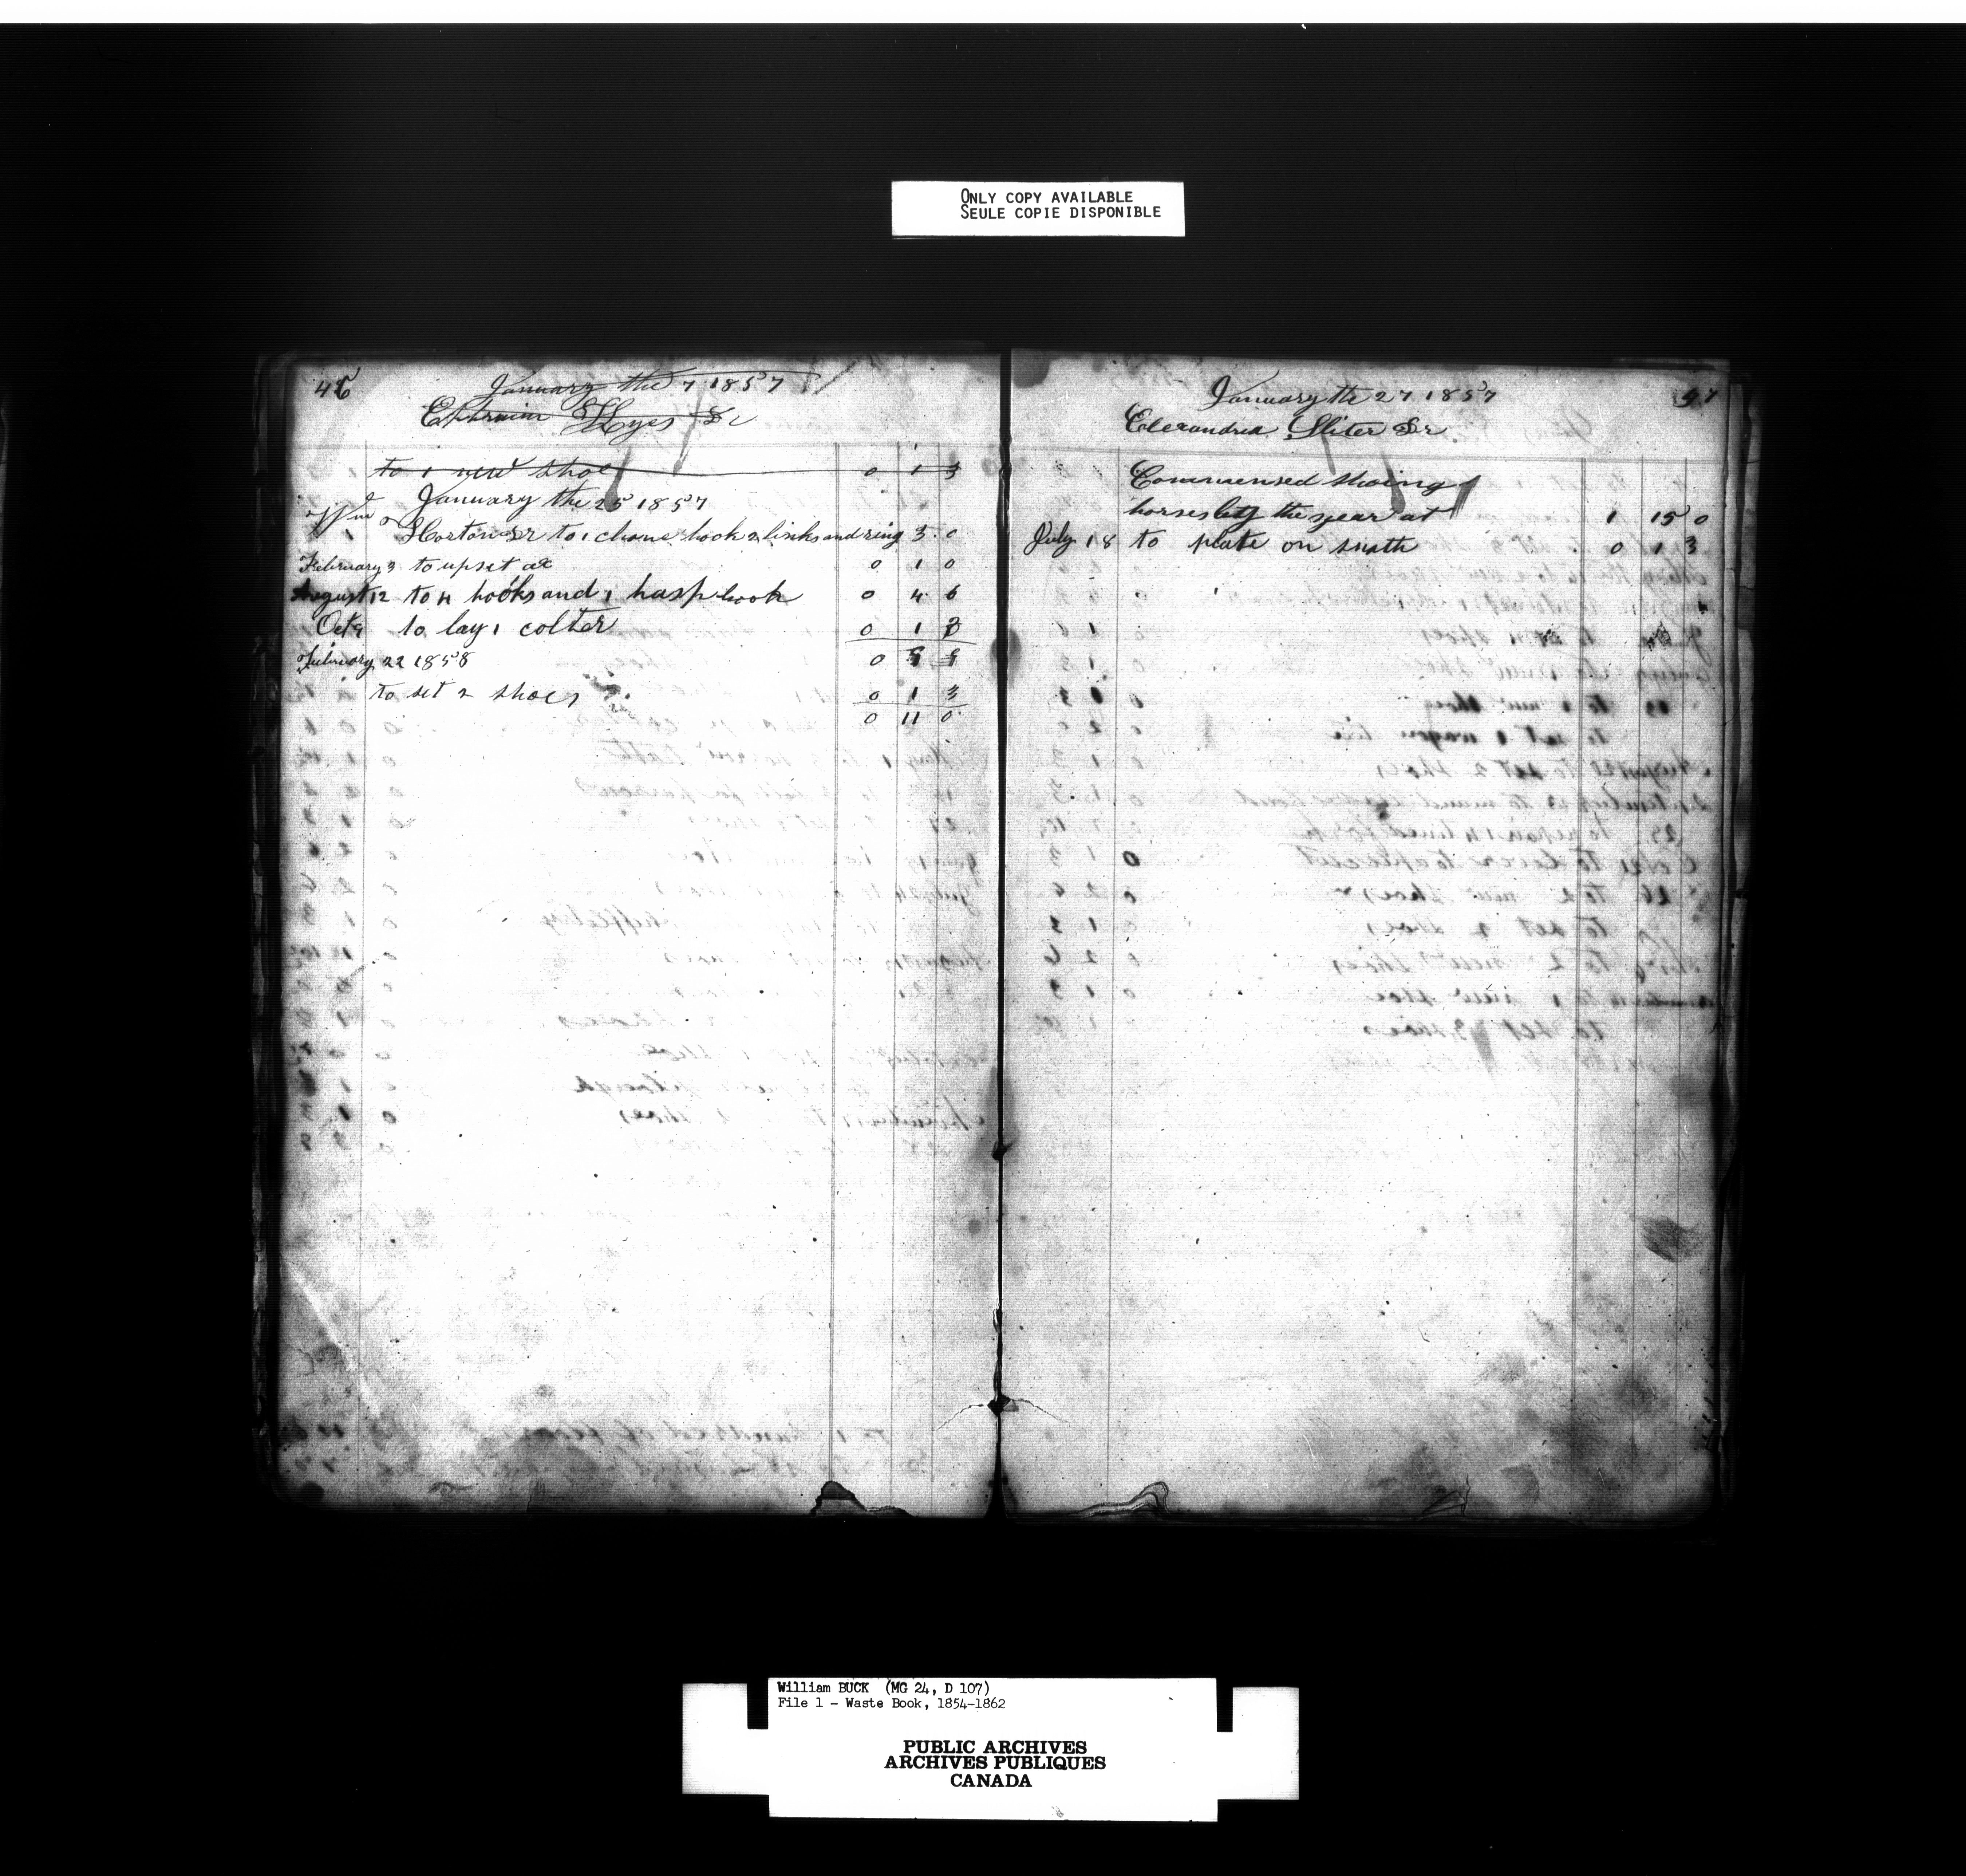 ONLY COPY AVAILABLE
SEULE COPIE DISPONIBLE
46
January the 7 1857
Ephraim Hyes Dr
to 1 new shoe 0 1 3
January the 25 1857
Wm Horton Dr to 1 chane hook 2 links and ring 3 0
February 3 to upset ax 0 1 0
August 12 to 4 hooks and 1 hasp hook 0 4 6
Oct 9 to lay 1 colter 0 1 3
February 22 1858 0 9 9
to set 2 shoes 0 1 3
0 11 0
47
January the 27 1857
Elexandrea Sliter Dr
Commensed shoing
horses by the year at 1 15 0
July 18 to plate on snath 0 1 3
William BUCK (MG 24, D 107)
File 1 - Waste Book, 1854-1862
PUBLIC ARCHIVES
ARCHIVES PUBLIQUES
CANADA